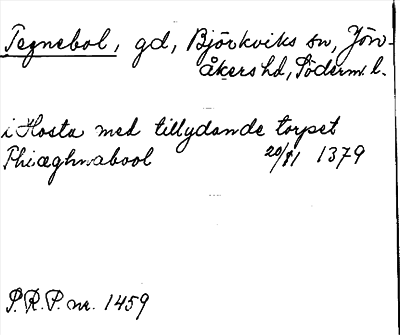 Tegnebol, gd, Björkviks sn, Jön-
åkers hd, Söderm. l.
i Hosta med tillydande torpet
Thiæghnabool 20/11 1379
P.R.P. nr. 1459